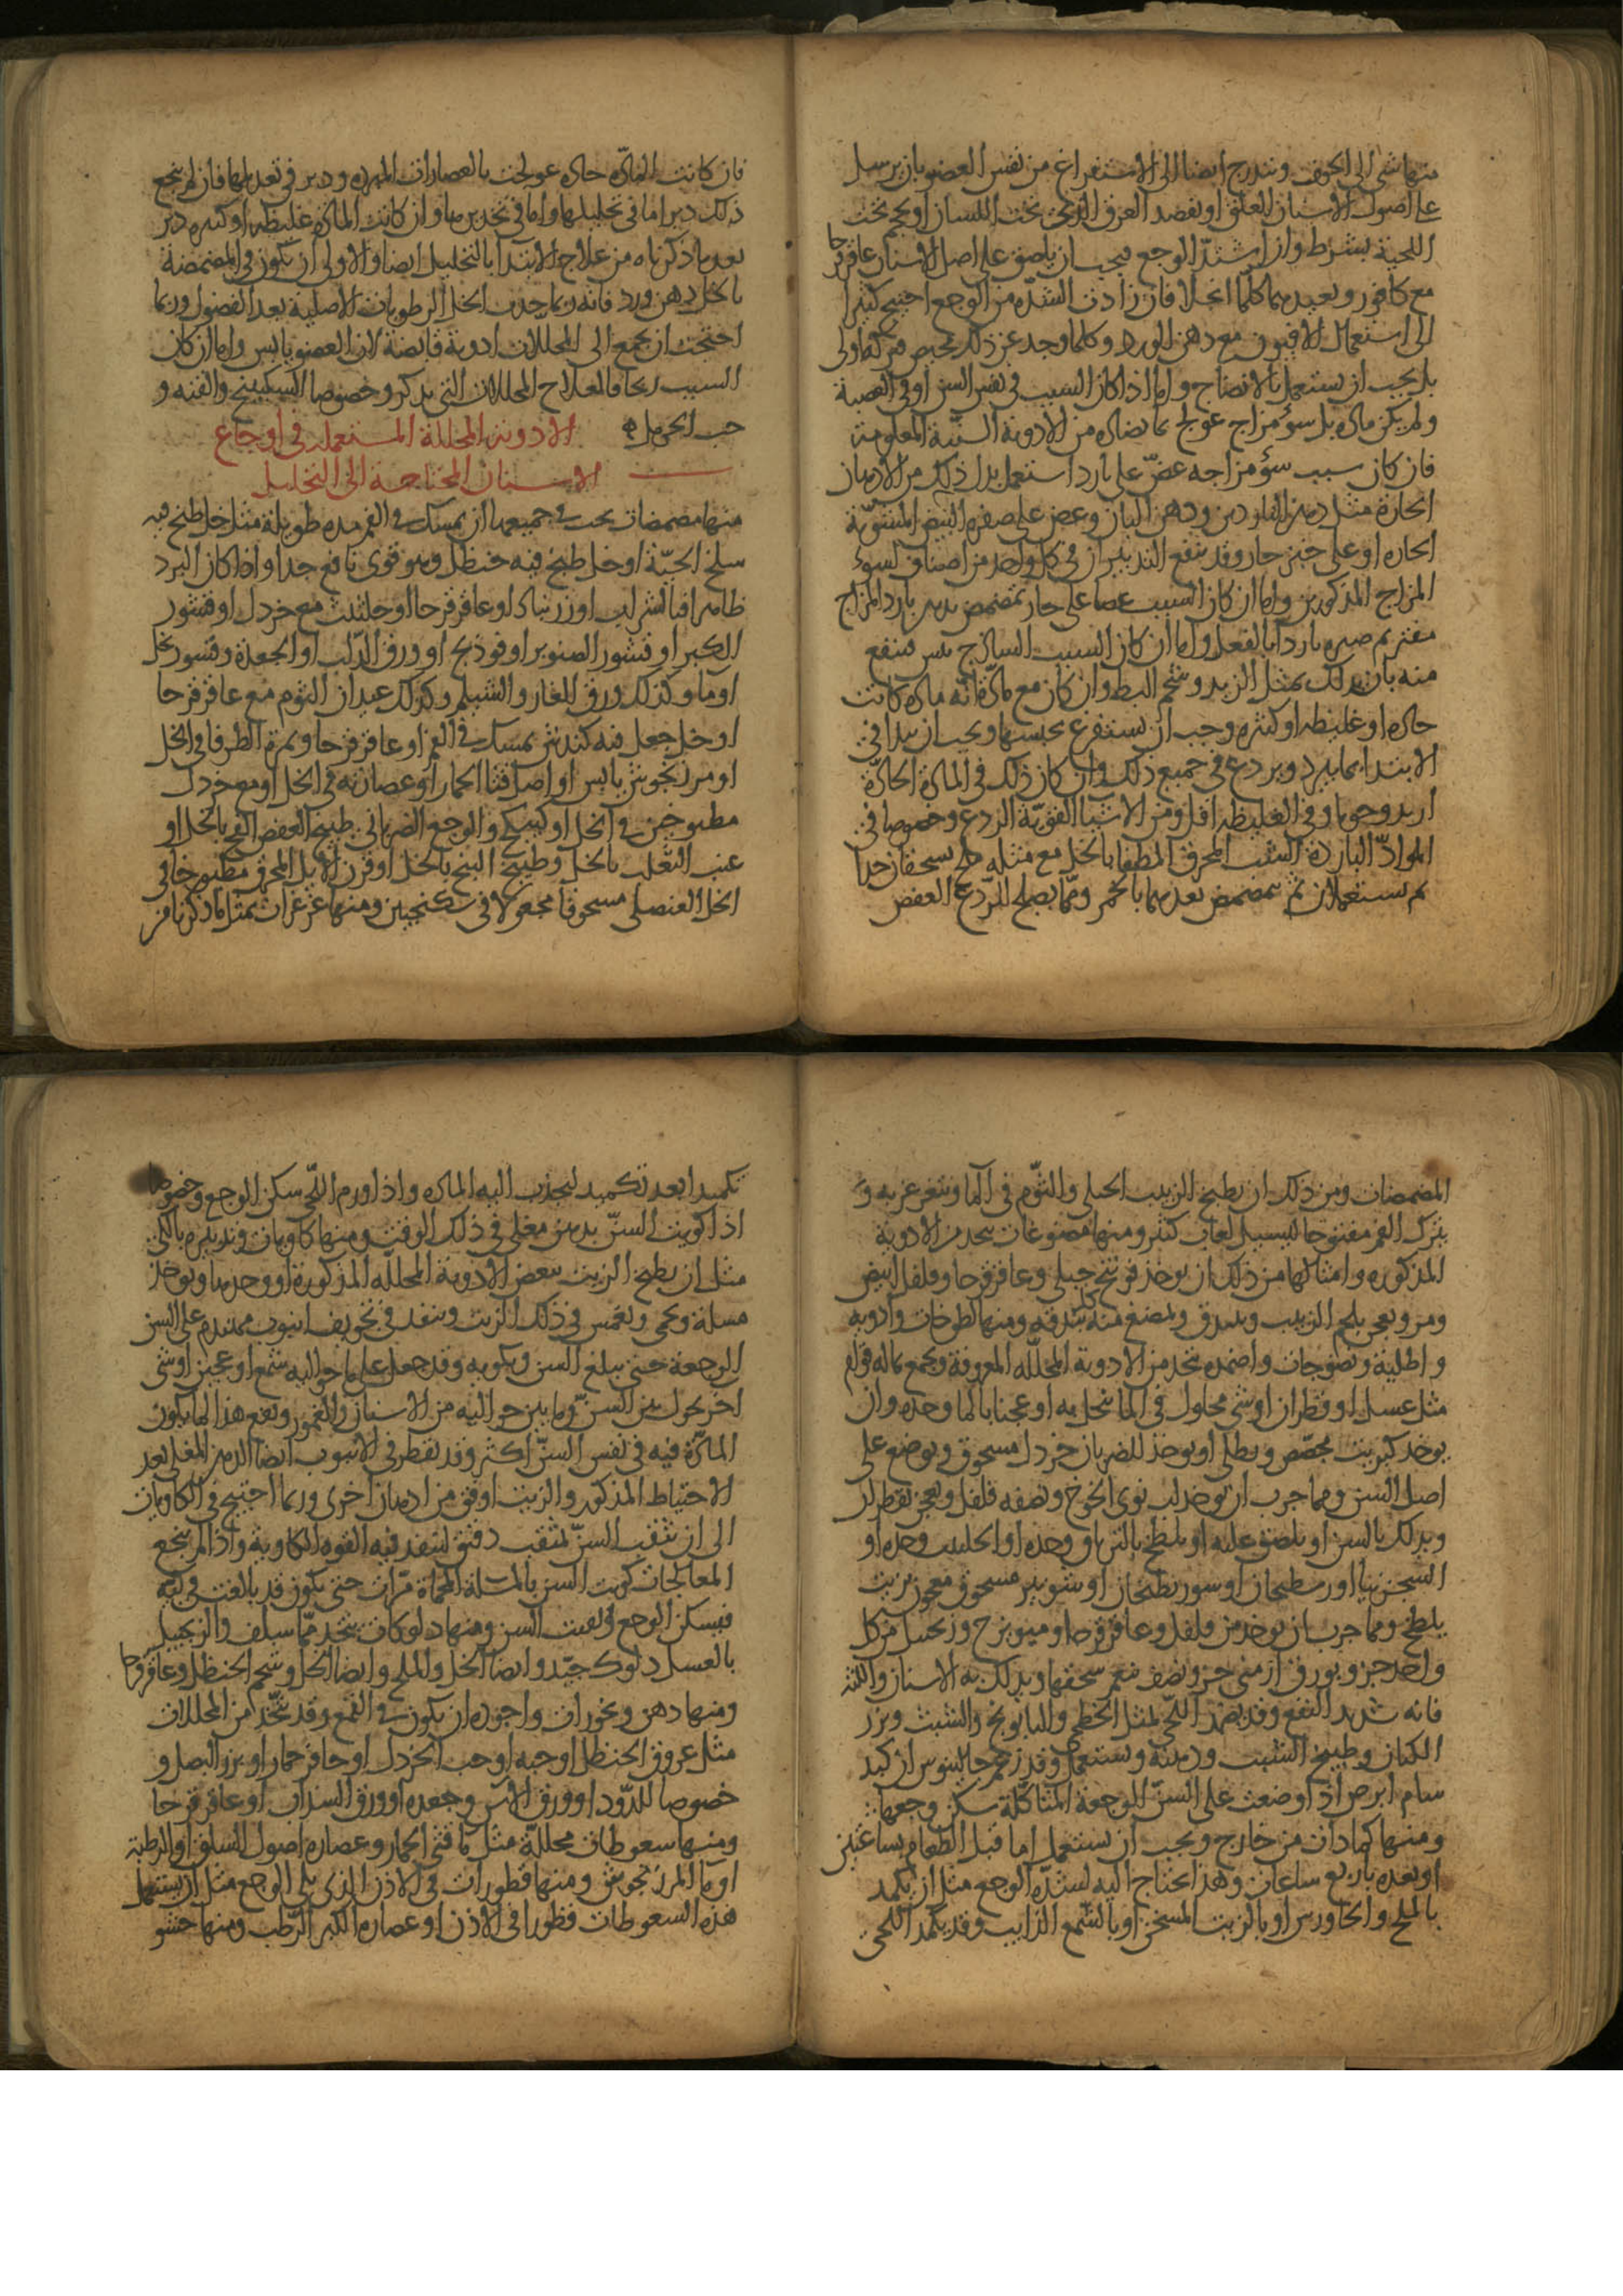 منها شئ الى الجوف ويتدرج ايضا الى الاستفراغ من نفس العضو بان يرسل
على اصول الاسنان العلق او يفصد العرق الذى تحت اللسان او يحجم تحت
اللحية بشرط وان اشتد الوجع فيجب ان يلصق على اصل الاسنان عاقرقرحا
مع كافور ويعيدهما كلما انحلا فان زادت الشدة من الوجع احتيج كثيرا
الى استعمال الافيون مع دهن الورد وكلما وجد عن ذلك محيص فتركه اولى
بل يجب ان يستعمل بالانضاج واما اذا كان السبب في نفس السن او في العصبة
ولم يكن مادة بل سوء مزاج عولج بما يضاده من الادوية السنية المعلومة
فان كان سبب سوء مزاجه عض على بارد استعمل بدل ذلك من الادهان
الحارة مثل دهن الناردين ودهن البان وعض على صفرة البيض المشوية
الحارة او على خبز حار وقد ينفع التدبيران في كل واحد من اصناف لسوء
المزاج المذكورين واما ان كان السبب عضا على حار تمضمض بدهن بارد المزاج
مفتر ثم صيره باردا بالفعل واما ان كان السبب الساذج يبس فينفع
منه بان يدلك بمثل الزبد وشحم البط وان كان مع مادة اية مادة كانت
حادة او غليظة او كثيرة وجب ان تستفرغ بحبسها ويجب ان يبدا في
الابتدا بما يبرد ويردع في جميع ذلك وان كان ذلك في المادة الحادة
ازيد وجوبا وفي الغليظة اقل ومن الاشيا القوية الردع وخصوصا في
المواد الباردة الشب المحرق المطفا بالخل مع مثله ملح يسحقان جدا
ثم يستعملان ثم يتمضمض بعدهما بالخمر ومما يصلح للردع العفص
فان كانت المادة حادة عولجت بالعصارات المبردة ودبر في تعديلها فان لم ينجع
ذلك دبر اما في تحليلها واما في تخديرها وان كانت المادة غليظة او كثيرة دبر
بعد ما ذكرناه من علاج الابتدا بالتحليل ايضا والاولى ان يكون في المضمضة
بالخل دهن ورد فانه ربما جذب الخل الرطوبات الاصلية بعد الفضول وربما
احتجت ان تجمع الى المحللات ادوية قابضة لان العضو يابس واما ان كان
السبب ريحا فالعلاج المحللات التي نذكر وخصوصا السكبينج والقنة و
حب الحرمل ه الادوية المحللة المستعملة في اوجاع
الاسنان المحتاجة الى التحليل
منها مضمضات يجب في جميعها ان تمسك في الفم مدة طويلة مثل خل طبخ فيه
سلخ الحية او خل طبخ فيه حنظل وهو قوى نافع جدا واذا كان البرد
ظاهرا فبالشراب او زرنباد او عاقرقرحا او حلتيت مع خردل او قشور
الكبر او قشور الصنوبر او فوذنج او ورق الدلب او الجعدة وقشور بخل
او ما وكذلك ورق الغار والشيلم وكذلك عيدان الثوم مع عاقرقرحا
او خل جعل فيه كندش يمسك في الفم او عاقرقرحا وثمرة الطرفا في الخل
او مرزنجوش يابس او اصل قثا الحمار او عصارته في الخل او مع خردل
مطبوخين في الخل او كبيكج والوجع الضربانى طبيخ العفص الفج بالخل او
عنب الثعلب بالخل وطبيخ البنج بالخل او قرن الايل المحرق مطبوخا في
الخل العنصلى مسحوقا مجعولا في سكنجبين ومنها غرغرات بمثل ما ذكرنا من
المضمضات ومن ذلك ان يطبخ الزبيب الجبلى والثوم في الما ويتغرغر به و
يترك الفم مفتوحا ليسيل لعاب كثير ومنها مضوغات يتخذ من الادوية
المذكورة وامثالها من ذلك ان يوخذ فوتنج جبلى وعاقرقرحا وفلفل ابيض
ومر ويعجن بلحم الزبيب ويبندق ويمضغ منه بندقة ومنها لطوخات وادوية
واطلية ونضوجات واضمدة يتخذ من الادوية المحللة المعروفة ويجمع بما له قوام
مثل عسل او قطران او شى محلول في الما ينحل به او عجنا بالما وحده وان
يوخذ كبريت مجصص ويطلى او يوخذ للضربان خردل مسحوق ويوضع على
اصل السن ومما جرب ان يوخذ لب نوى الخوخ ونصفه فلفل ويعجن بقطران
ويدلك بالسن او يلصق عليه او يلطخ بالترياق وحده او الحلتيت وحده او
الشجرنيا او ارسطيحان او سورنطيحان او شونيز مسحوق معجون بزيت
يلطخ ومما جرب ان يوخذ من فلفل وعاقرقرحا وميويزج وزنجبيل من كل
واحد جزو بورق ارمنى جز ونصف ينعم سحقها ويدلك به الاسنان واللثة
فانه شديد النفع وقد يضمد اللحى بمثل الخطمى والبابونج والشبث وبزر
الكتان وطبيخ الشبث ودهنه ويستعمل وقد زعم جالينوس ان كبد
سام ابرص اذا وضعت على السن الوجعة المتاكلة سكن وجعها
ومنها كمادات من خارج ويجب ان تستعمل اما قبل الطعام بساعتين
او بعده باربع ساعات وهذا يحتاج اليه لشدة الوجع مثل ان يكمد
بالملح والجاورس او بالزيت المسخن او بالشمع الذايب وقد يكمد اللحى
تكميدا بعد تكميد لينجذب اليه المادة واذا ورم اللحى سكن الوجع وخصوصا
اذا كويت السن بدهن مغلى في ذلك الوقت ومنها كاويات وتدبيره بالكى
مثل ان يطبخ الزيت ببعض الادوية المحللة المذكورة او وحدها ويوخذ
مسلة وتحمى وتغمس في ذلك الزيت وينفذ في تجويف انبوب مهندم على السن
الوجعة حتى يبلغ السن ويكويه وقد جعل على ما حواليه شمع او عجين او شى
اخر يحول بين السن وما بين حواليه من الاسنان والغمور ونفع هذا لما يكون
المادة فيه في نفس السن اكثر وقد يقطر في الانبوب ايضا الدهن المغلى بعد
الاحتياط المذكور والزيت اوفق من ادهان اخرى وربما احتيج في الكاويات
الى ان يثقب السن بمثقب دقيق لينفذ فيه القوة الكاوية واذا لم ينجع
المعالجات كويت السن بالمسلة المحماة مرات حتى يكون قد بالغت في كيه
فيسكن الوجع ويفتت السن ومنها دلوكات يتخذ مما سلف والزنجبيل
بالعسل دلوك جيد وايضا الخل والملح وايضا الخل وشحم الحنظل وعاقرقرحا
ومنها دهن وبخورات واجوده ان يكون في القمع وقد يتخذ من المحللات
مثل عروق الحنظل او حبه او حب الخردل او حافر حمار او بزر البصل و
خصوصا للدود او ورق الاس وجعده او ورق السداب او عاقرقرحا
ومنها سعوطات محللة مثل ما قثا الحمار وعصارة اصول السلق او الرطبة
او ما المرزنجوش ومنها قطورات في الاذن الذى يلى الوجع مثل ان يستعمل
هذه السعوطات قطورا في الاذن او عصارة الكبر الرطب ومنها حشو